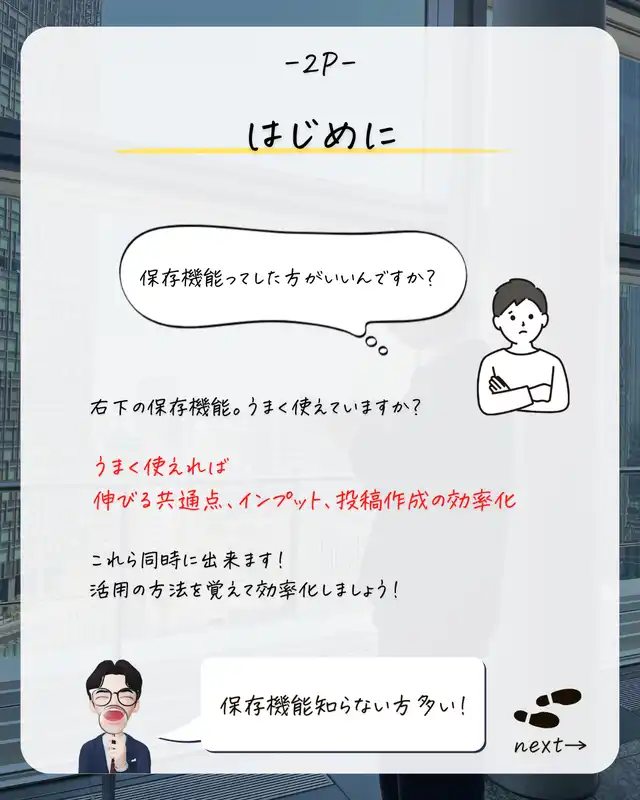 -2P-
はじめに
保存機能ってした方がいいんですか?
右下の保存機能。うまく使えていますか?
うまく使えれば
伸びる共通点、インプット、投稿作成の効率化
これら同時に出来ます!
活用の方法を覚えて効率化しましょう!
保存機能知らない方多い!
next→